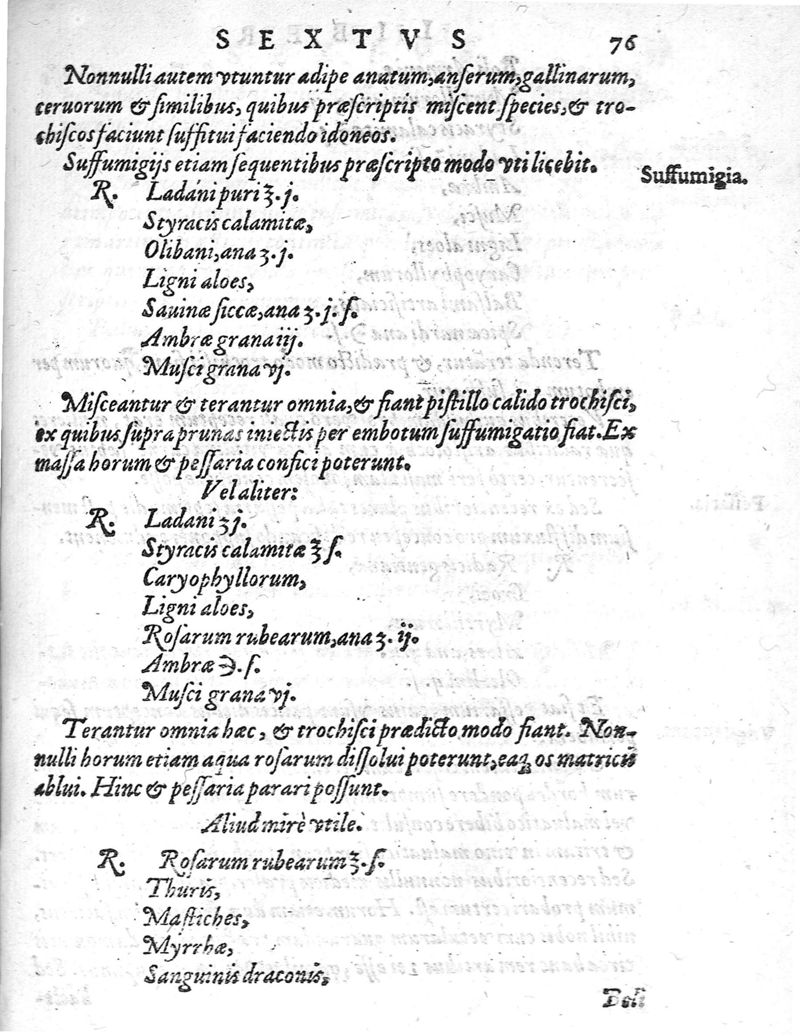 SEXTVS 76
Nonnulli autem vtuntur adipe anatum, anserum, gallinarum,
ceruorum & similibus, quibus præscriptis miscent species, & tro-
chiscos faciunt suffitui faciendo idoneos.
Suffumigijs etiam sequentibus præscripto modo vti licebit.
Suffumigia.
℞. Ladani puri ʒ. j.
Styracis calamitæ,
Olibani, ana ʒ. j.
Ligni aloes,
Sauinæ siccæ, ana ʒ. j. ſ.
Ambræ grana iij.
Musci grana vj.
Misceantur & terantur omnia, & fiant pistillo calido trochisci,
ex quibus supra prunas iniectis per embotum suffumigatio fiat. Ex
massa horum & pessaria confici poterunt.
Vel aliter:
℞. Ladani ʒ j.
Styracis calamitæ ℥ ſ.
Caryophyllorum,
Ligni aloes,
Rosarum rubearum, ana ʒ. ij.
Ambræ ℈. ſ.
Musci grana vj.
Terantur omnia hæc, & trochisci prædicto modo fiant. Non-
nulli horum etiam aqua rosarum dissolui poterunt, eaq; os matricis
ablui. Hinc & pessaria parari possunt.
Aliud mirè vtile.
℞. Rosarum rubearum ℥. ſ.
Thuris,
Mastiches,
Myrrhæ,
Sanguinis draconis,
Boli